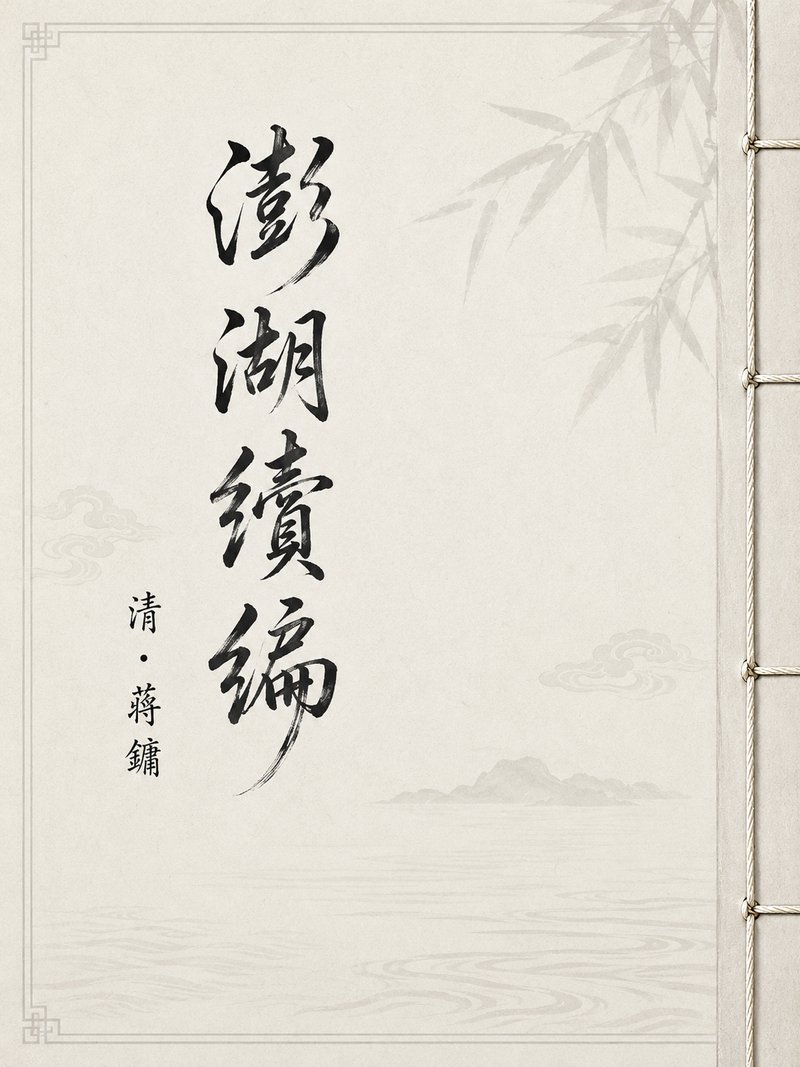 澎湖續編
清·蔣鏞